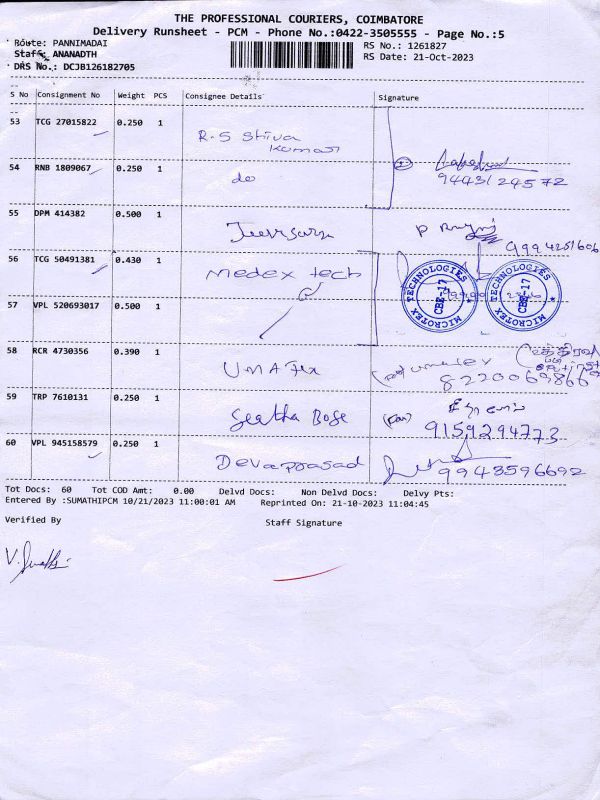 THE PROFESSIONAL COURIERS, COIMBATORE
Delivery Runsheet - PCM - Phone No.:0422-3505555 - Page No.:5
Route: PANNIMADAI
RS No.: 1261827
Staff: ANANADTH
RS Date: 21-Oct-2023
DRS No.: DCJB126182705
S No Consignment No Weight PCS Consignee Details Signature
53 TCG 27015822 0.250 1 R.S Shiva Kumar
54 RNB 1809067 0.250 1 do
9443124572
55 DPM 414382 0.500 1
9994251606
56 TCG 50491381 0.430 1 Medex tech
MICROTEX TECHNOLOGIES CBE-17
MICROTEX TECHNOLOGIES CBE-17
57 VPL 520693017 0.500 1
58 RCR 4730356 0.390 1 UMA Tex
59 TRP 7610131 0.250 1 Geetha Bose
9159294773
60 VPL 945158579 0.250 1 Devaprasad
9943596692
Tot Docs: 60 Tot COD Amt: 0.00 Delvd Docs: Non Delvd Docs: Delvy Pts:
Entered By :SUMATHIPCM 10/21/2023 11:00:01 AM Reprinted On: 21-10-2023 11:04:45
Verified By Staff Signature